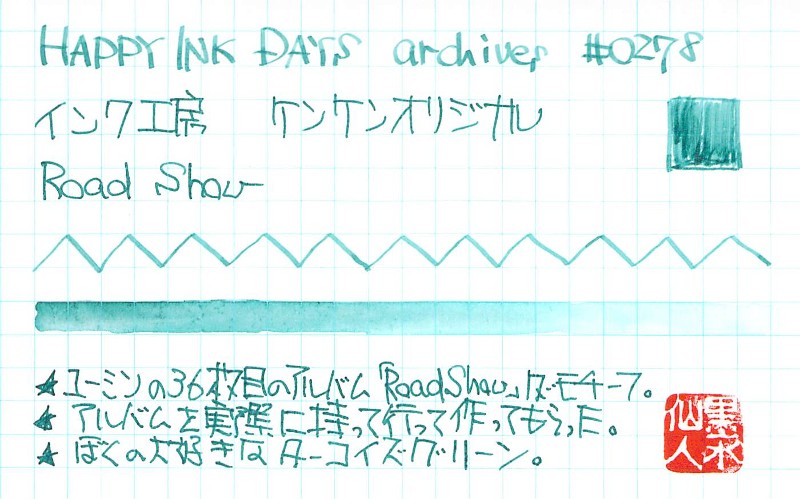 HAPPY INK DAYS archives #0278
インク工房 ケンケンオリジナル
Road Show
★ユーミンの36枚目のアルバム「Road Show」がモチーフ。
★アルバムを実際に持って行って作ってもらった。
★ぼくの大好きなターコイズグリーン。
墨水
仙人